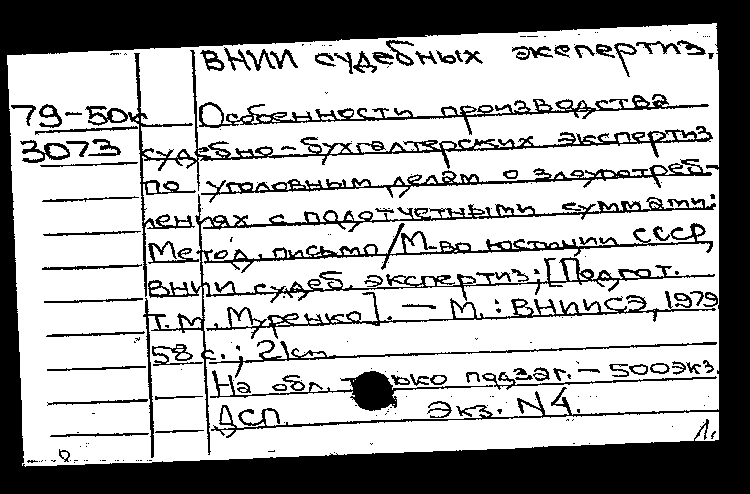 ВНИИ судебных экспертиз.
79-50к Особенности производства
3073 судебно-бухгалтерских экспертиз
по уголовным делам о злоупотреб-
лениях с подотчетными суммами:
Метод. письмо/М-во юстиции СССР,
ВНИИ судеб. экспертиз; [Подгот.
Т.М. Муренко]. — М.: ВНИИСЭ, 1979
58 с.; 21 см.
На обл. только подзаг. - 500 экз.
ДСП. Экз. N4.
1.